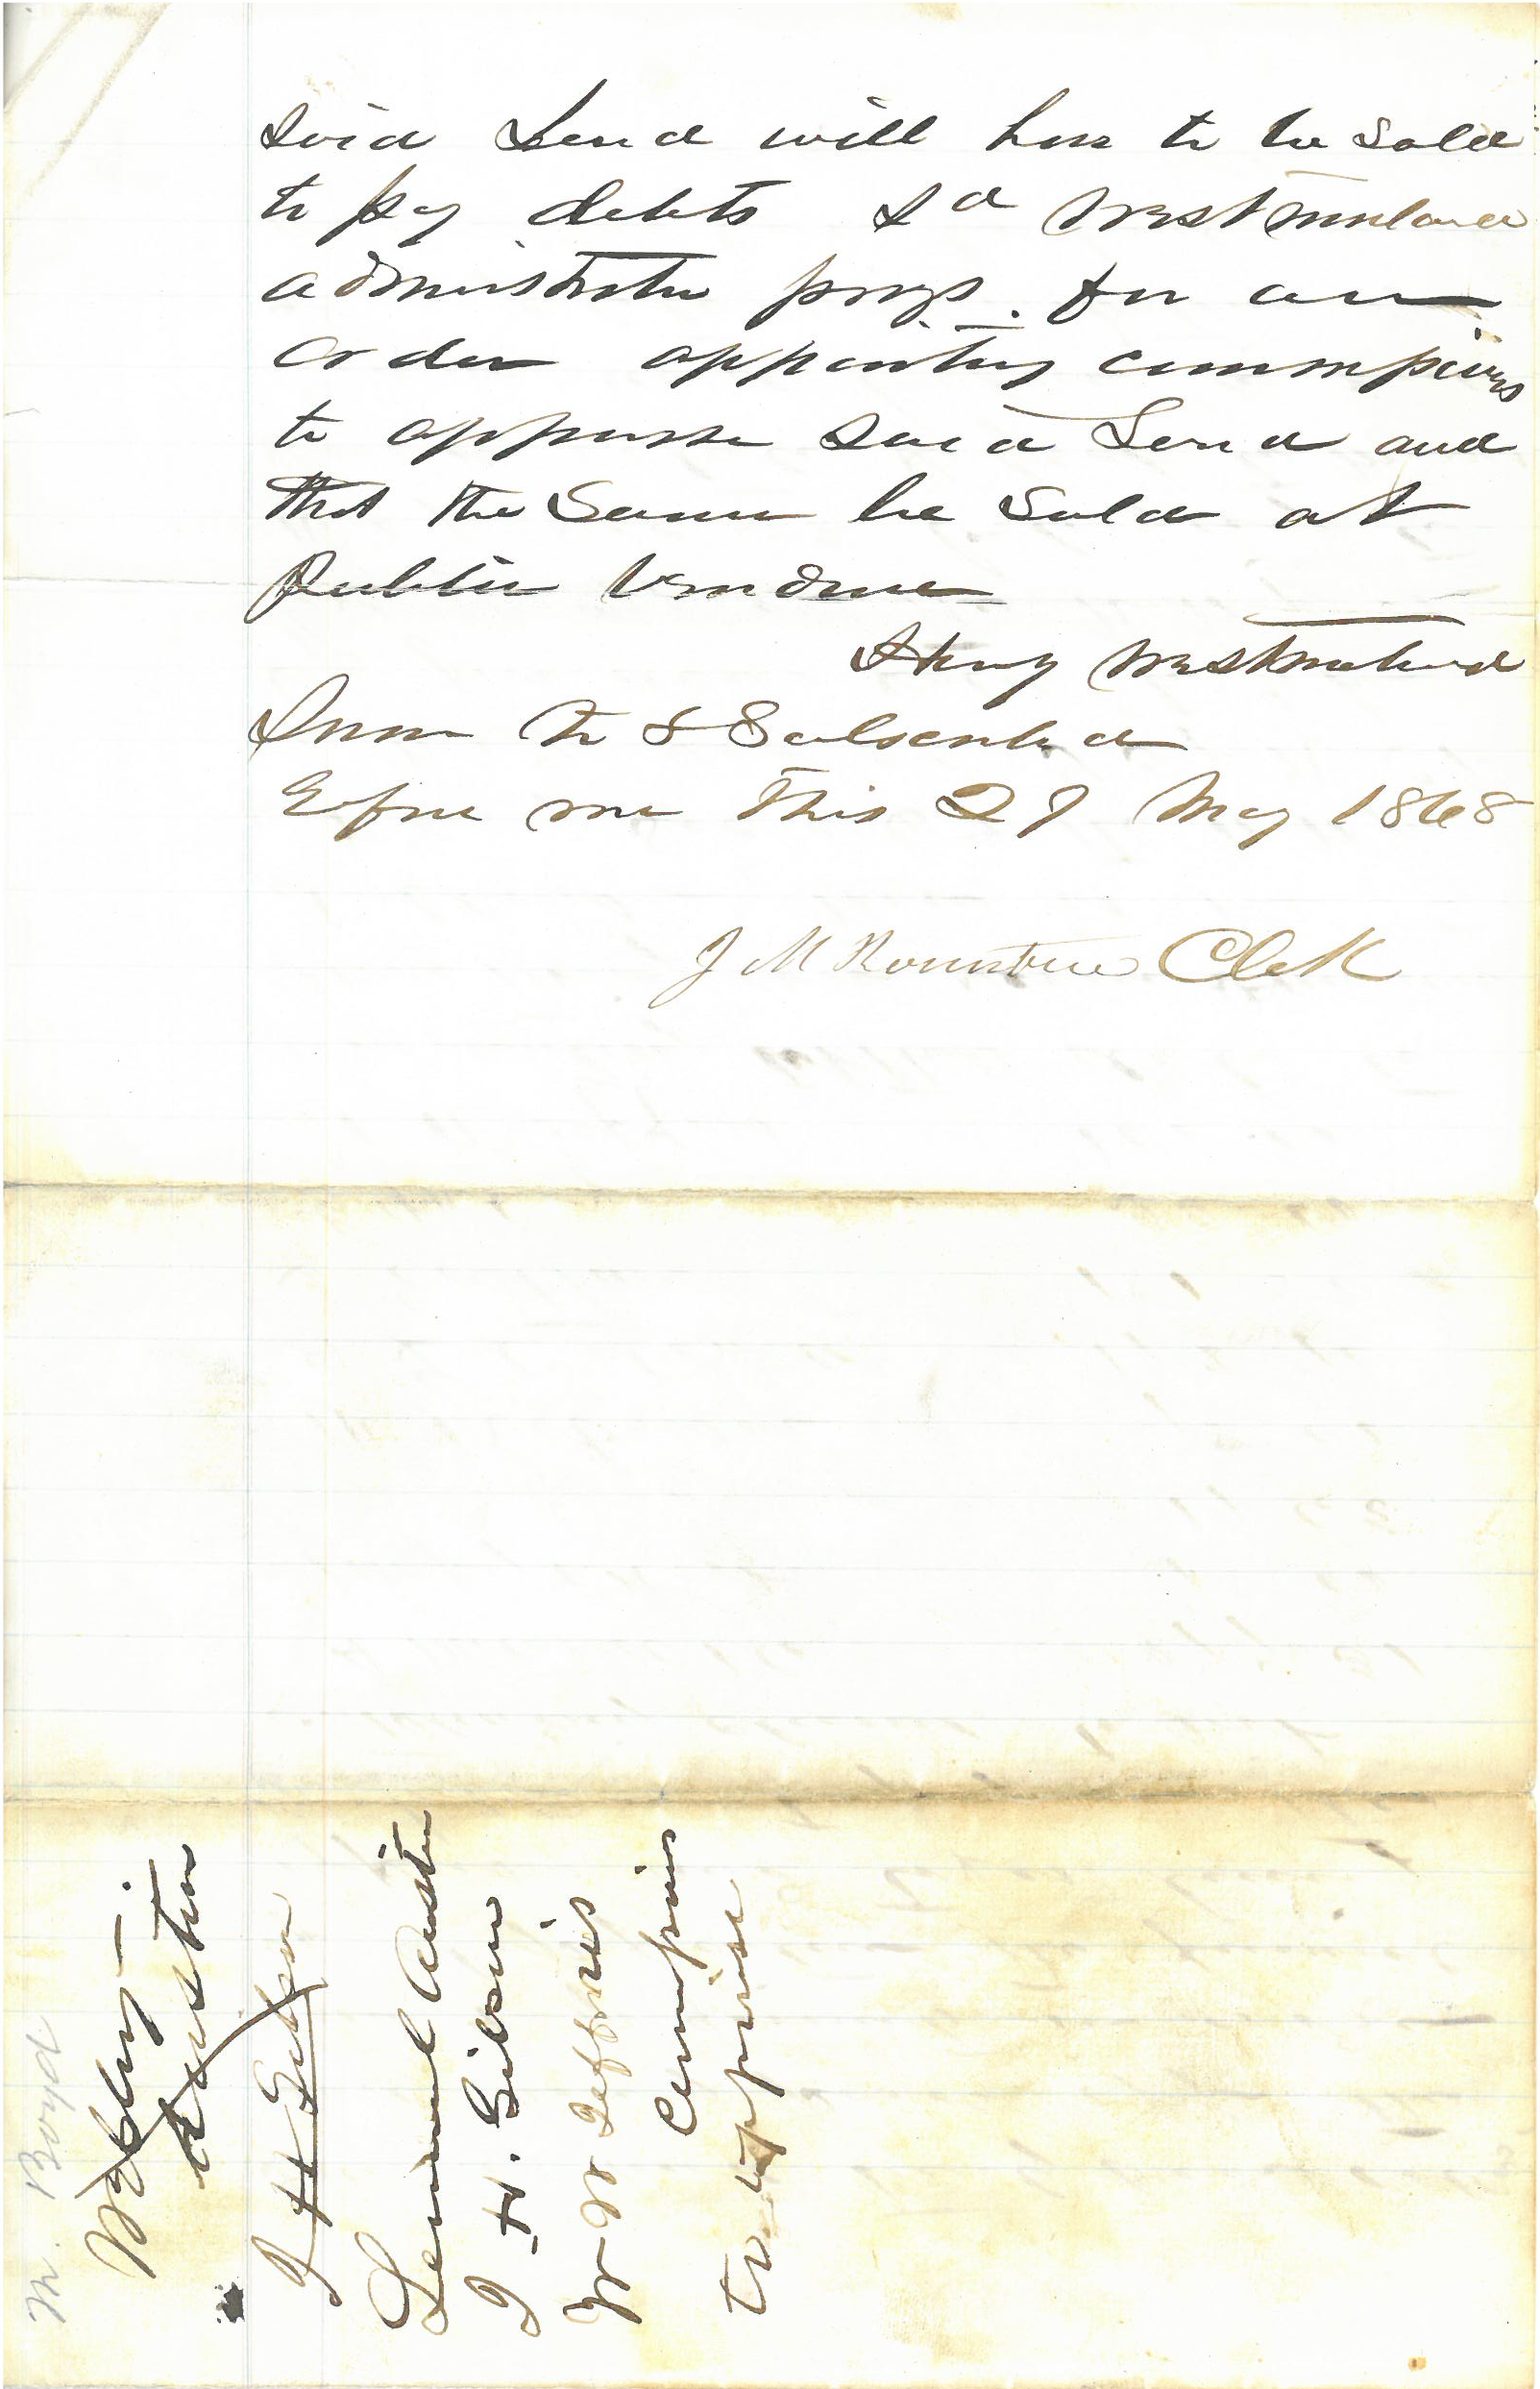 said Land will have to be sold
to pay debts Sd Westmoland
administrator prays for an
order appointing commissioners
to appraise said Land and
that the Same be Sold at
Public Vendue
Henry Westmoland
Sworn to & Subscribed
Before me this 27 May 1868
J M Rountree Clek
M. Boyd
Austin
J H Gibson
Lemuel Austin
J H. Gibson
W W Jeffries
Comissiners
to apprise